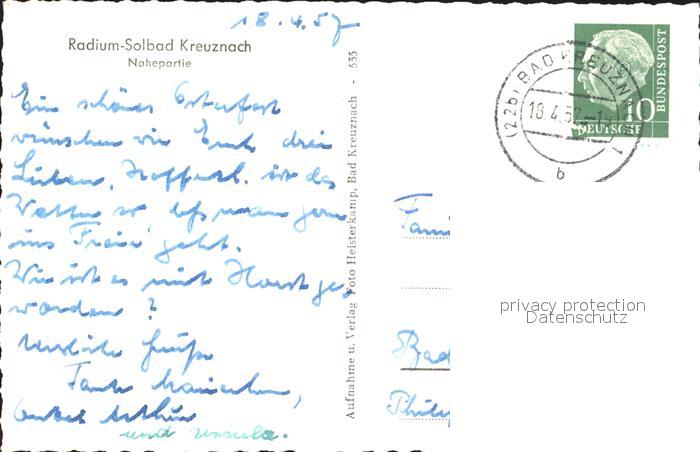 18.4.57
Radium-Solbad Kreuznach
Nahepartie
Ein schönes Osterfest
wünschen wir Euch drei
Lieben. Hoffentl. ist das
Wetter so, daß man gern
ins Freie geht.
Wie ist es mit Horst ge-
worden?
Herzliche Grüße
Tante
Onkel Arthur
und Ursula.
Aufnahme u. Verlag Foto Heisterkamp, Bad Kreuznach - 535
(22b) BAD KREUZNACH 1
18.4.57
b
10
DEUTSCHE
BUNDESPOST
Fami
Bad
Phili
privacy protection
Datenschutz